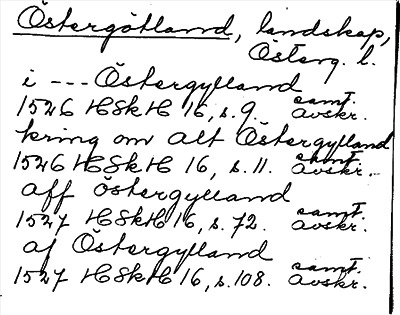 Östergötland, landskap,
Österg. l.
i --- Östergylland
1526 HSkH 16, s. 9. samt. avskr.
kring om alt Östergylland
1526 HSkH 16, s. 11. samt. avskr.
aff östergylland
1527 HSkH 16, s. 72. samt. avskr.
af Östergylland
1527 HSkH 16, s. 108. samt. avskr.